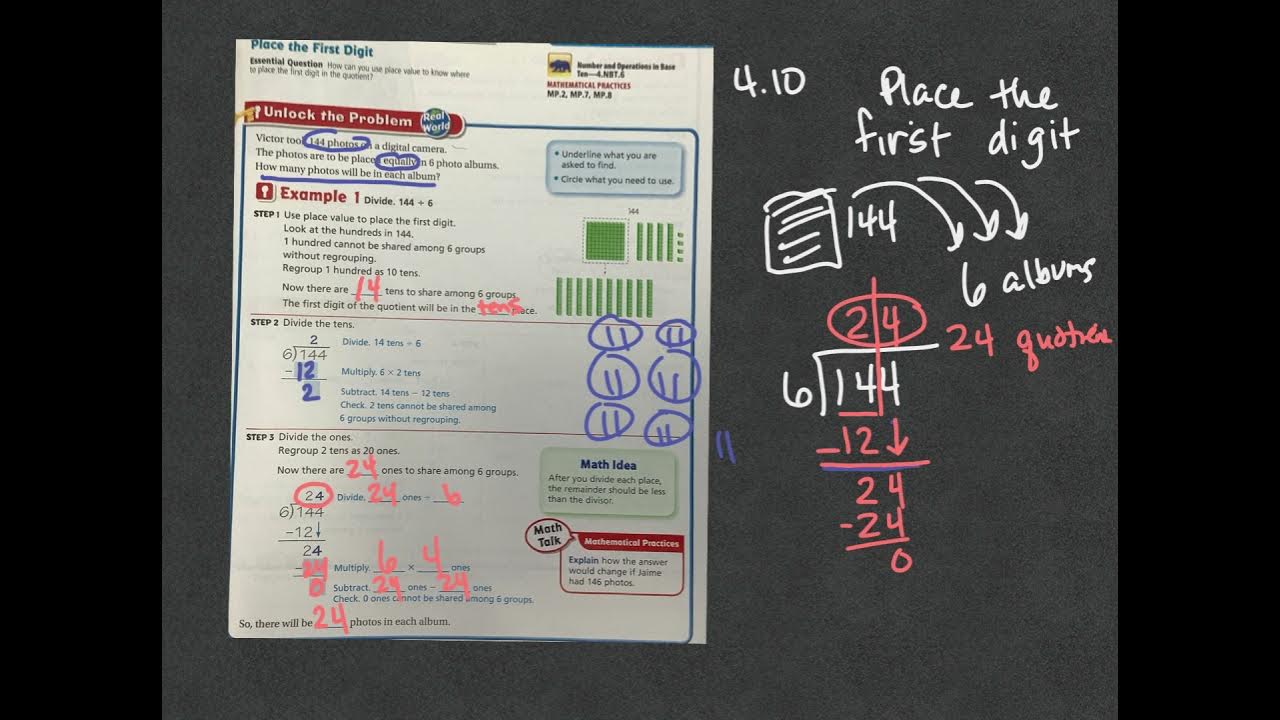 Place the First Digit
Essential Question How can you use place value to know where
to place the first digit in the quotient?
Number and Operations in Base
Ten—4.NBT.6
MATHEMATICAL PRACTICES
MP.2, MP.7, MP.8
Unlock the Problem
Real
World
Victor took 144 photos on a digital camera.
The photos are to be place equally in 6 photo albums.
How many photos will be in each album?
• Underline what you are
asked to find.
• Circle what you need to use.
Example 1 Divide. 144 ÷ 6
STEP 1 Use place value to place the first digit.
Look at the hundreds in 144.
1 hundred cannot be shared among 6 groups
without regrouping.
Regroup 1 hundred as 10 tens.
144
Now there are 14 tens to share among 6 groups.
The first digit of the quotient will be in the tens place.
STEP 2 Divide the tens.
2
6)144
-12
2
Divide. 14 tens ÷ 6
Multiply. 6 × 2 tens
Subtract. 14 tens − 12 tens
Check. 2 tens cannot be shared among
6 groups without regrouping.
STEP 3 Divide the ones.
Regroup 2 tens as 20 ones.
Now there are 24 ones to share among 6 groups.
24
6)144
-12↓
24
-24
0
Divide. 24 ones ÷ 6
Multiply. 6 × 4 ones
Subtract. 24 ones − 24 ones
Check. 0 ones cannot be shared among 6 groups.
So, there will be 24 photos in each album.
Math Idea
After you divide each place,
the remainder should be less
than the divisor.
Math
Talk
Mathematical Practices
Explain how the answer
would change if Jaime
had 146 photos.
4.10 Place the
first digit
144
6 albums
24
24 quotien
6)144
-12↓
24
-24
0